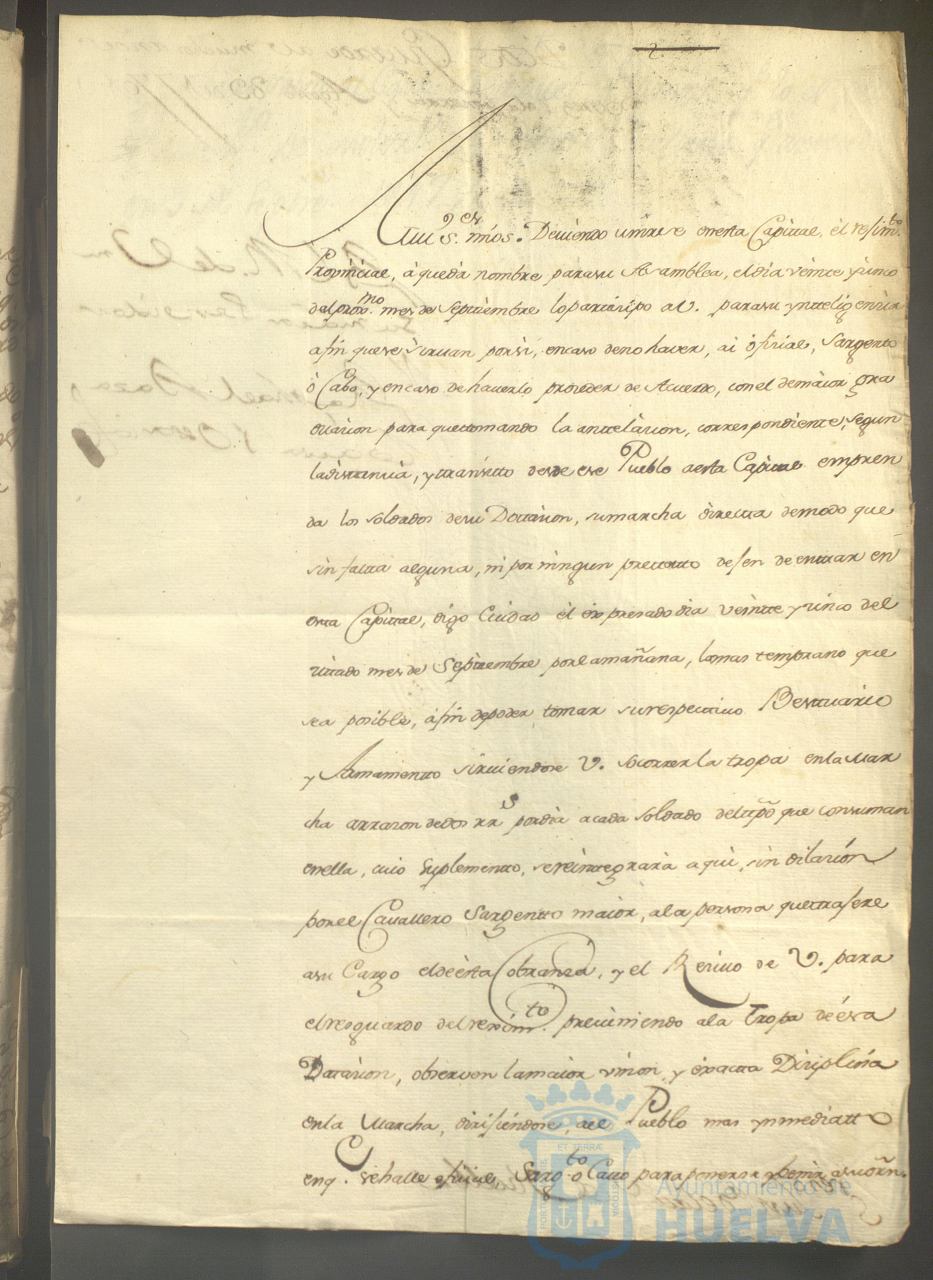 2
Mui S.res mios. Deviendo unirse en esta Capital, el resim.to
Provincial, à quedà nombre para su Asamblea, el dia veinte y sinco
del prox.mo mes de Septiembre lo partisipo a V. para su ynteligensia
afin que se sirvan por si, en caso de no haver, ai ofisial, Sargento
ò Cabo, y en caso de haverlo proseder de Acuerdo, con el de maior gra
duasion para que tomando la antelasion, correspondiente, segun
la distansia, y transitto desde ese Pueblo a esta Capital empren
da los soldados de su Dottasion, su marcha directa de modo que
sin falta alguna, ni por ningun pretexto desen de entrar en
esta Capital, digo Ciudad èl expresado dia veintte y sinco del
sitado mes de Septiembre por la mañana, lo mas temprano que
sea posible, a fin de poder tomar su respectivo Bestuario
y Armamentto sirviendose V. socorrer la tropa en la Mar
cha arrazon de dos rr.s por dia a cada soldado del tpõ que consuman
en ella, cuio Suplementto, se reintegrarà aqui, sin dilasion
por el Cavallero Sargentto maior, a la persona que trasere
a su Cargo el de èsta Cobranza, y el Resivo de V. para
el resguardo del resim.to previniendo a la Tropa de ésa
Dotasion, observen la maior vnion y exacta Disiplina
en la Marcha, dirisiéndose, àel Pueblo mas ynmediatto
en q.e se halle ofisial, Sarg.to ò Cavo para ponerse y benir a su orñ.
ET TERRÆ
Ayuntamiento de
HUELVA